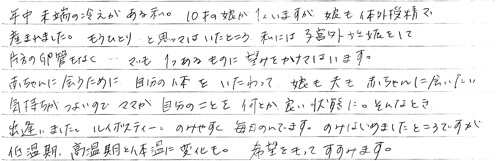 年中 末端の冷えがある私。 10才の娘が1人いますが 娘も体外授精で
産まれました。 もうひとり と思ってはいたところ 私には子宮外妊娠をして
片方の卵管もなく… でも 1つあるものに望みをかけてはいます。
赤ちゃんに会うために 自分の体を いたわって 娘も夫も 赤ちゃんに会いたい
気持ちがつよいので ママが 自分のことを 何とか良い状態に。そんなとき
出逢いました。ルイボスティー のみやすく 毎日のんでます。のみはじめましたところですが
低温期、高温期と体温に変化も。 希望をもって すすみます。